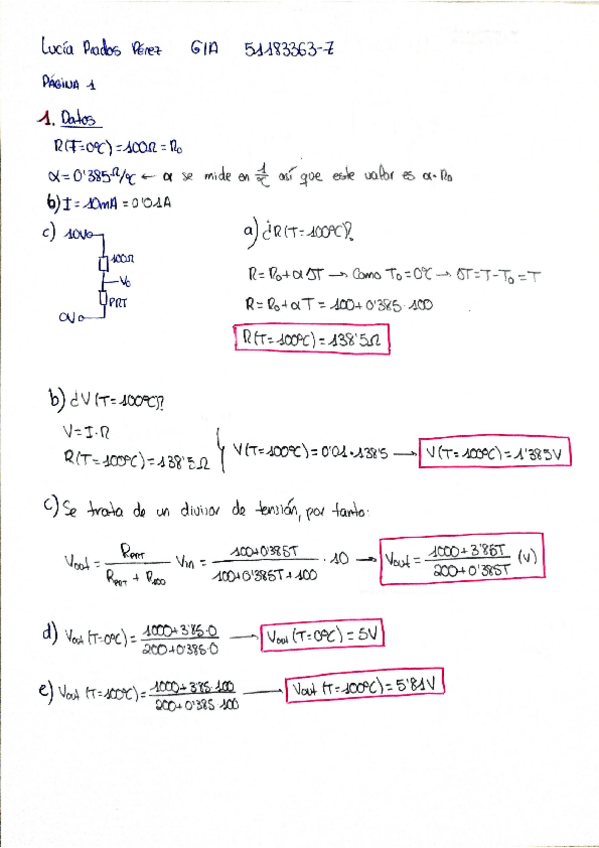 Lucía Prados Pérez GIA 51183363-Z
PÁGINA 1
1. Datos
R(T=0ºC)=100Ω=R₀
α=0'385 Ω/ºC ← α se mide en 1/ºC así que este valor es α·R₀
b) I=10mA=0'01A
c) 10V
100Ω
V₀
PRT
0V
a) ¿R(T=100ºC)?
R=R₀+αδT → Como T₀=0ºC → δT=T-T₀=T
R=R₀+αT=100+0'385·100
R(T=100ºC)=138'5Ω
b) ¿V(T=100ºC)?
V=I·R
R(T=100ºC)=138'5Ω
V(T=100ºC)=0'01·138'5 → V(T=100ºC)=1'385V
c) Se trata de un divisor de tensión, por tanto:
Vout = R_PRT / (R_PRT + R_100) Vin = (100+0'385T) / (100+0'385T+100) · 10 → Vout = (1000+3'85T) / (200+0'385T) (V)
d) Vout(T=0ºC) = (1000+3'85·0) / (200+0'385·0) → Vout(T=0ºC)=5V
e) Vout(T=100ºC) = (1000+3'85·100) / (200+0'385·100) → Vout(T=100ºC)=5'81V